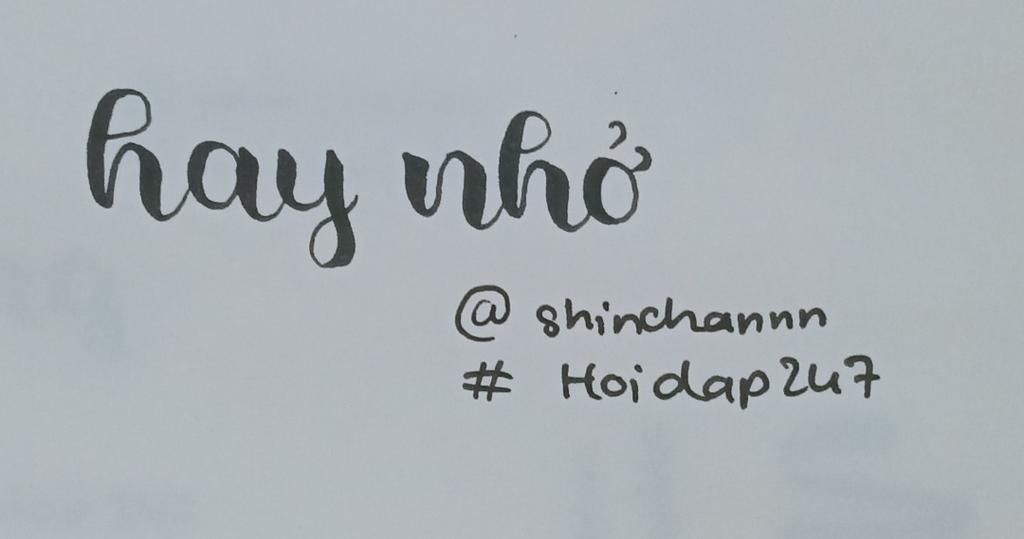 hay nhở
@ shinchannn
# Hoidap247